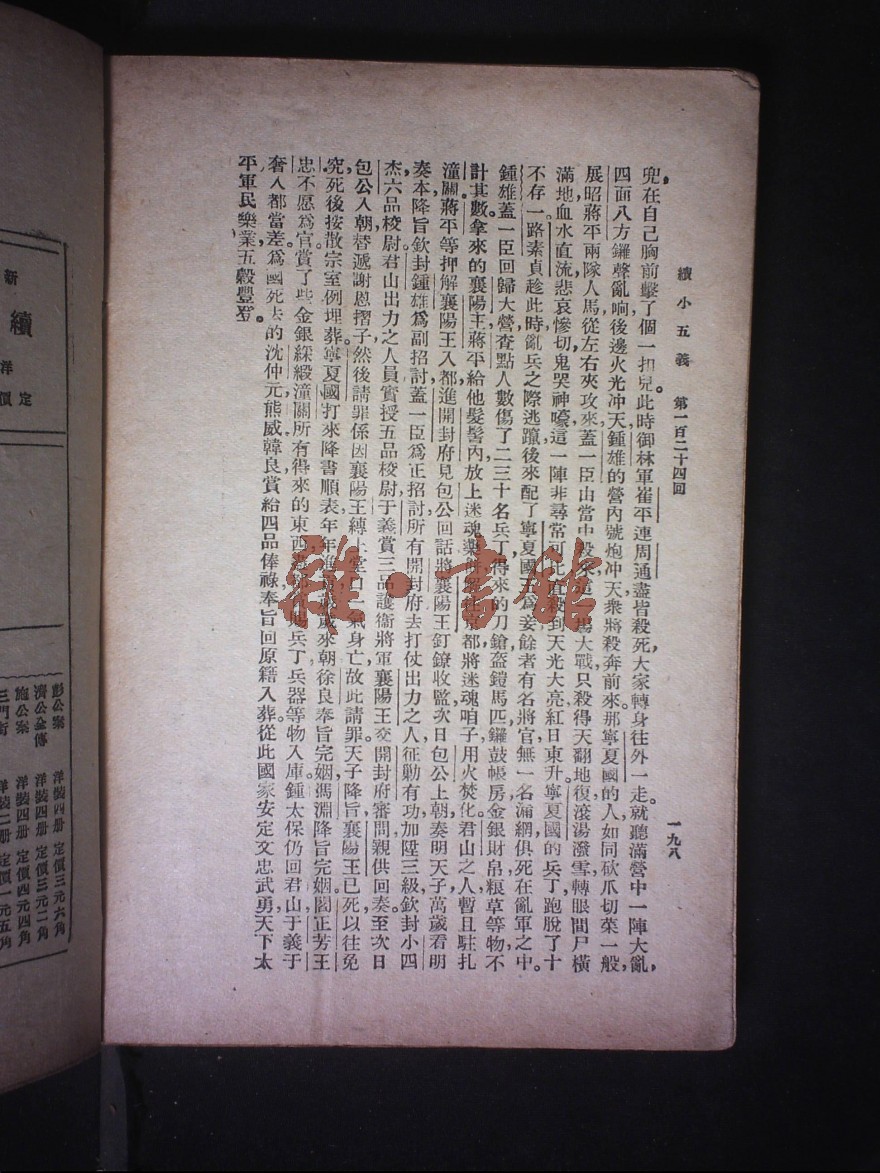 續小五義　第一百二十四回　一九八
兜在自己胸前擊了個一扣兒此時御林軍崔平連周通盡皆殺死大家轉身往外一走就聽滿營中一陣大亂
四面八方鑼聲亂响後邊火光冲天鍾雄的營內號炮冲天衆將殺奔前來那寧夏國的人如同砍爪切菜一般
展昭蔣平兩隊人馬從左右夾攻來蓋一臣山當中殺來這一場大戰只殺得天翻地復滾湯潑雪轉眼間尸橫
滿地血水直流悲哀慘切鬼哭神嚎這一陣非尋常可比直殺到天光大亮紅日東升寧夏國的兵丁跑脫了十
不存一路素貞趁此時亂兵之際逃躥後來配了寧夏國為妾餘者有名將官無一名漏網俱死在亂軍之中
鍾雄蓋一臣回歸大營查點人數傷了二三十名兵丁得來的刀鎗盔鎧馬匹鑼鼓帳房金銀財帛粮草等物不
計其數拿來的襄陽王蔣平給他髮髻內放上迷魂藥將解往京都將迷魂咱子用火焚化君山之人暫且駐扎
潼關蔣平等押解襄陽王入都進開封府見包公回話將襄陽王釘鐐收監次日包公上朝奏明天子萬歲看明
奏本降旨欽封鍾雄爲副招討蓋一臣爲正招討所有開封府去打仗出力之人征勦有功加陞三級欽封小四
杰六品校尉君山出力之人員實授五品校尉于義賞三品護衞將軍襄陽王交開封府審問親供回奏至次日
包公入朝替遞謝恩摺子然後請罪係因襄陽王縛上堂口一氣身亡故此請罪天子降旨襄陽王已死以往免
究死後按散宗室例埋葬寧夏國打來降書順表年年進貢歲歲來朝徐良奉旨完姻馮淵降旨完姻閻正芳王
忠不愿爲官賞了些金銀綵緞潼關所有得來的東西兵丁兵器等物入庫鍾太保仍回君山于義于
奢入都當差爲國死去的沈仲元熊威韓良賞給四品俸祿奉旨回原籍入葬從此國家安定文忠武勇天下太
平軍民樂業五穀豐登
雅·書館
新
續
洋
定價
彭公案　洋裝四册　定價三元六角
濟公全傳　洋裝四册　定價三元二角
施公案　洋裝四册　定價四元四角
三門街　洋裝二册　定價一元五角